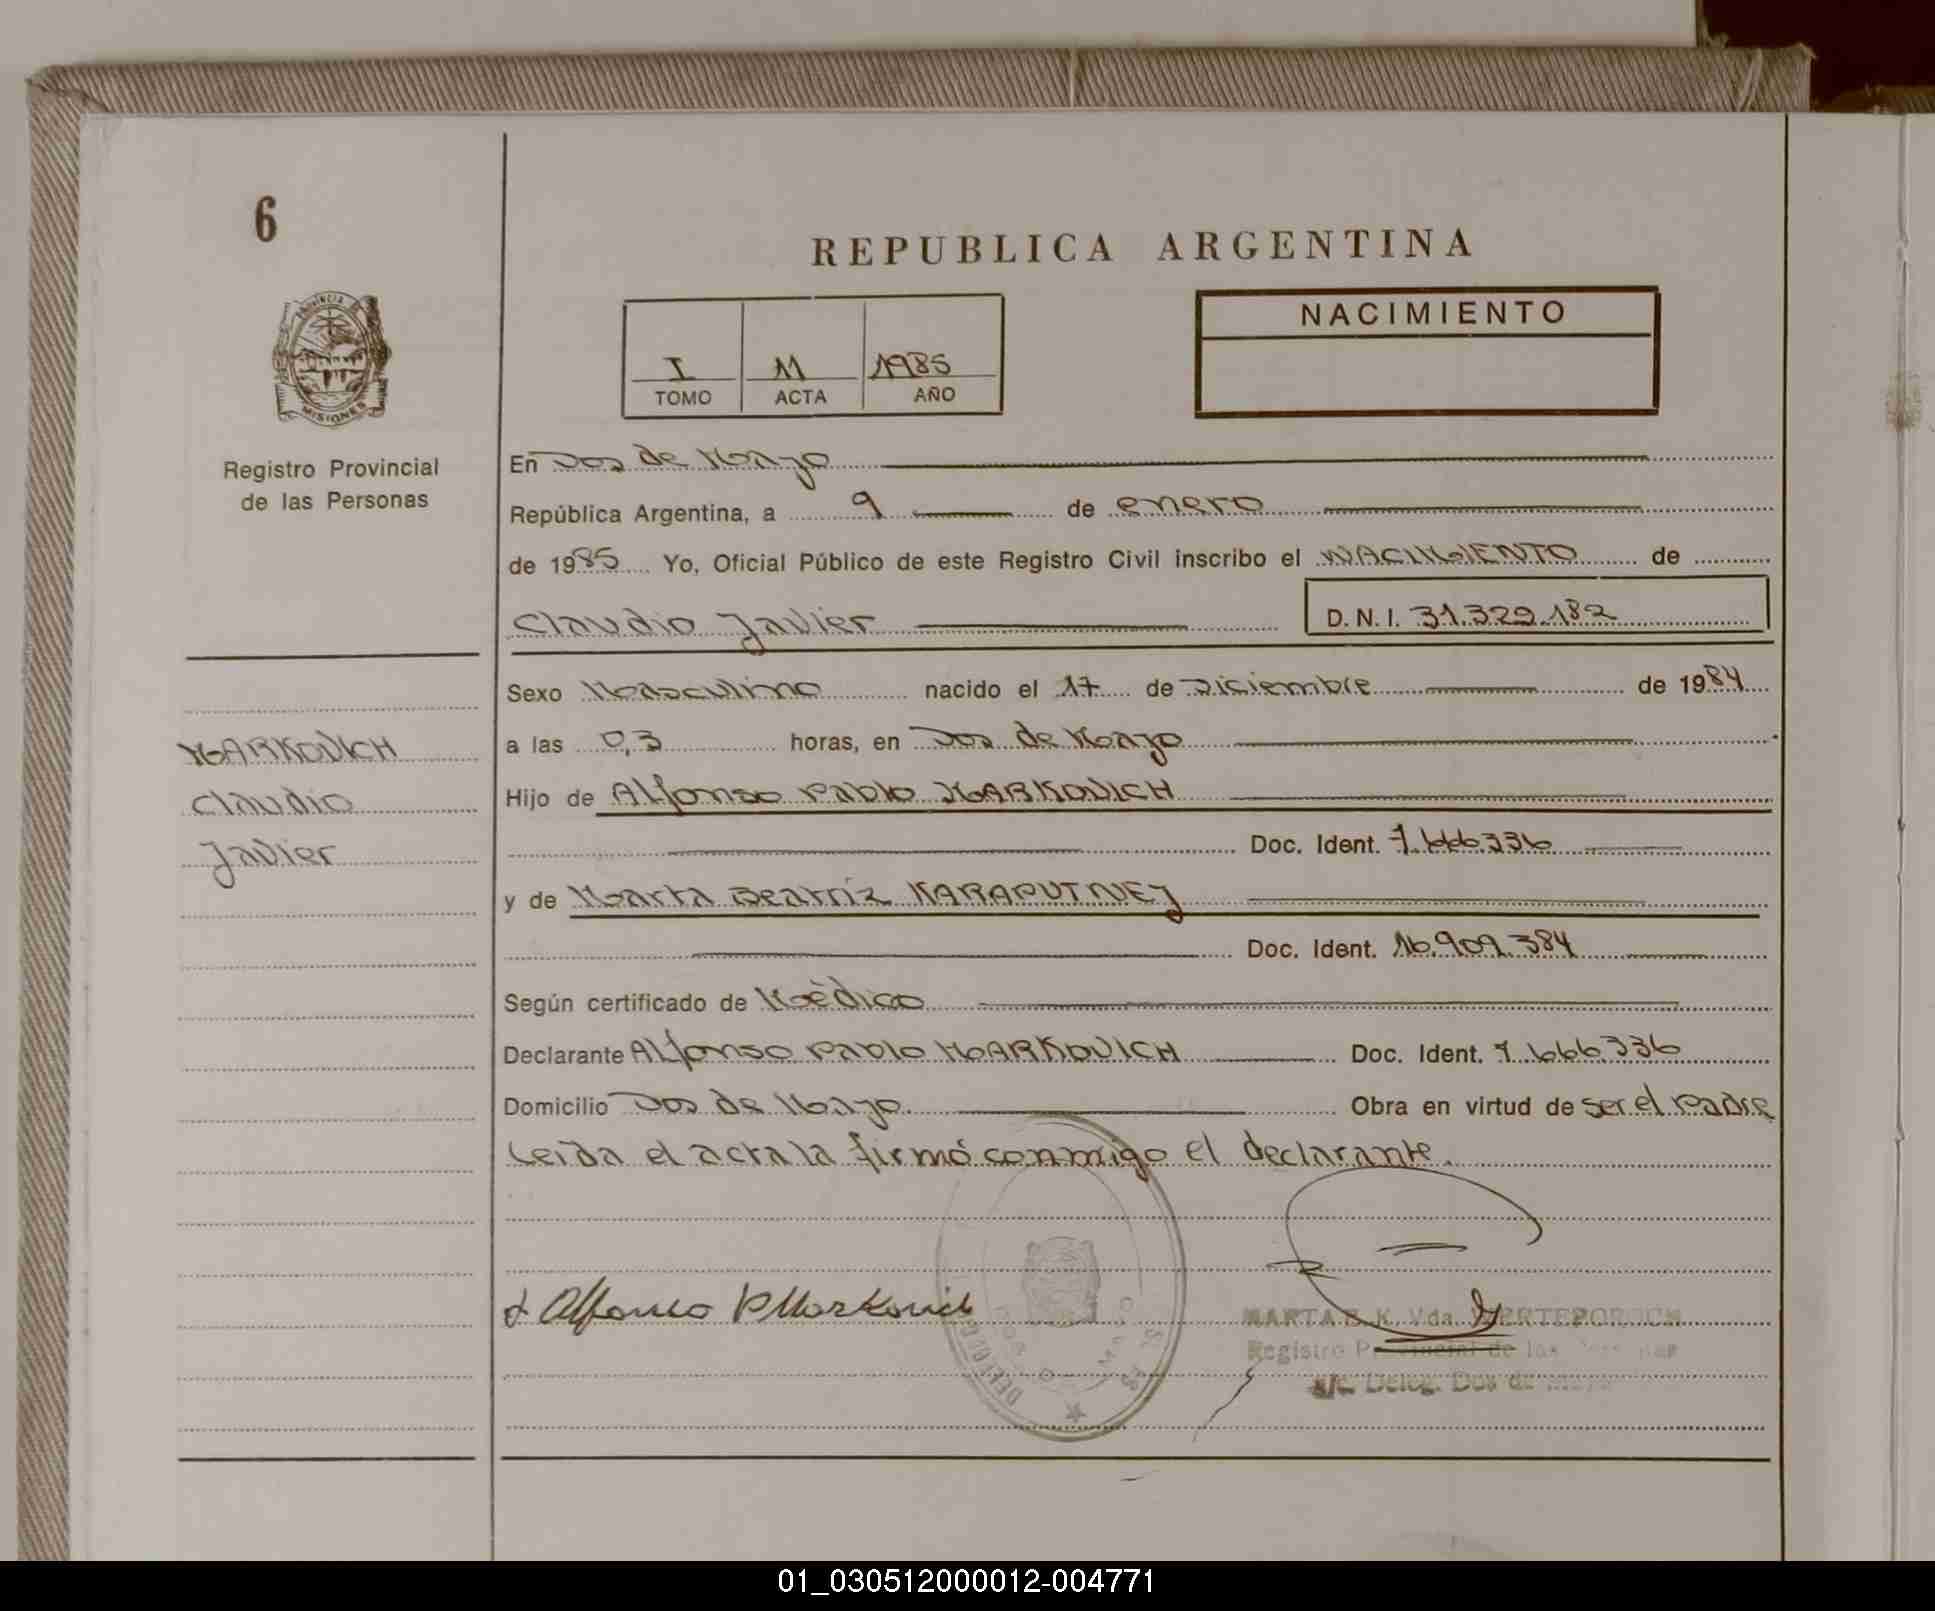 6
REPUBLICA ARGENTINA
PROVINCIA
MISIONES
Registro Provincial
de las Personas
I M 1985
TOMO ACTA AÑO
NACIMIENTO
En Dos de Mayo
República Argentina, a 9 de enero
de 1985 Yo, Oficial Público de este Registro Civil inscribo el NACIMIENTO de
Claudio Javier D.N.I. 31.329.182
Sexo Masculino nacido el 17 de Diciembre de 1984
a las 0,3 horas, en Dos de Mayo
Hijo de Alfonso Pablo MARKOVICH
Doc. Ident. 7.666.336
y de Marta Beatríz KARAPUTNEJ
Doc. Ident. 16.909.384
Según certificado de Médico
Declarante Alfonso Pablo MARKOVICH Doc. Ident. 7.666.336
Domicilio Dos de Mayo Obra en virtud de ser el Padre
Leída el acta la firmó conmigo el declarante.
MARKOVICH
Claudio
Javier
Alfonso P Markovich
MARTA K. Vda.
Registro Provincial de las
a/c. Deleg. Dos de Mayo
01_030512000012-004771